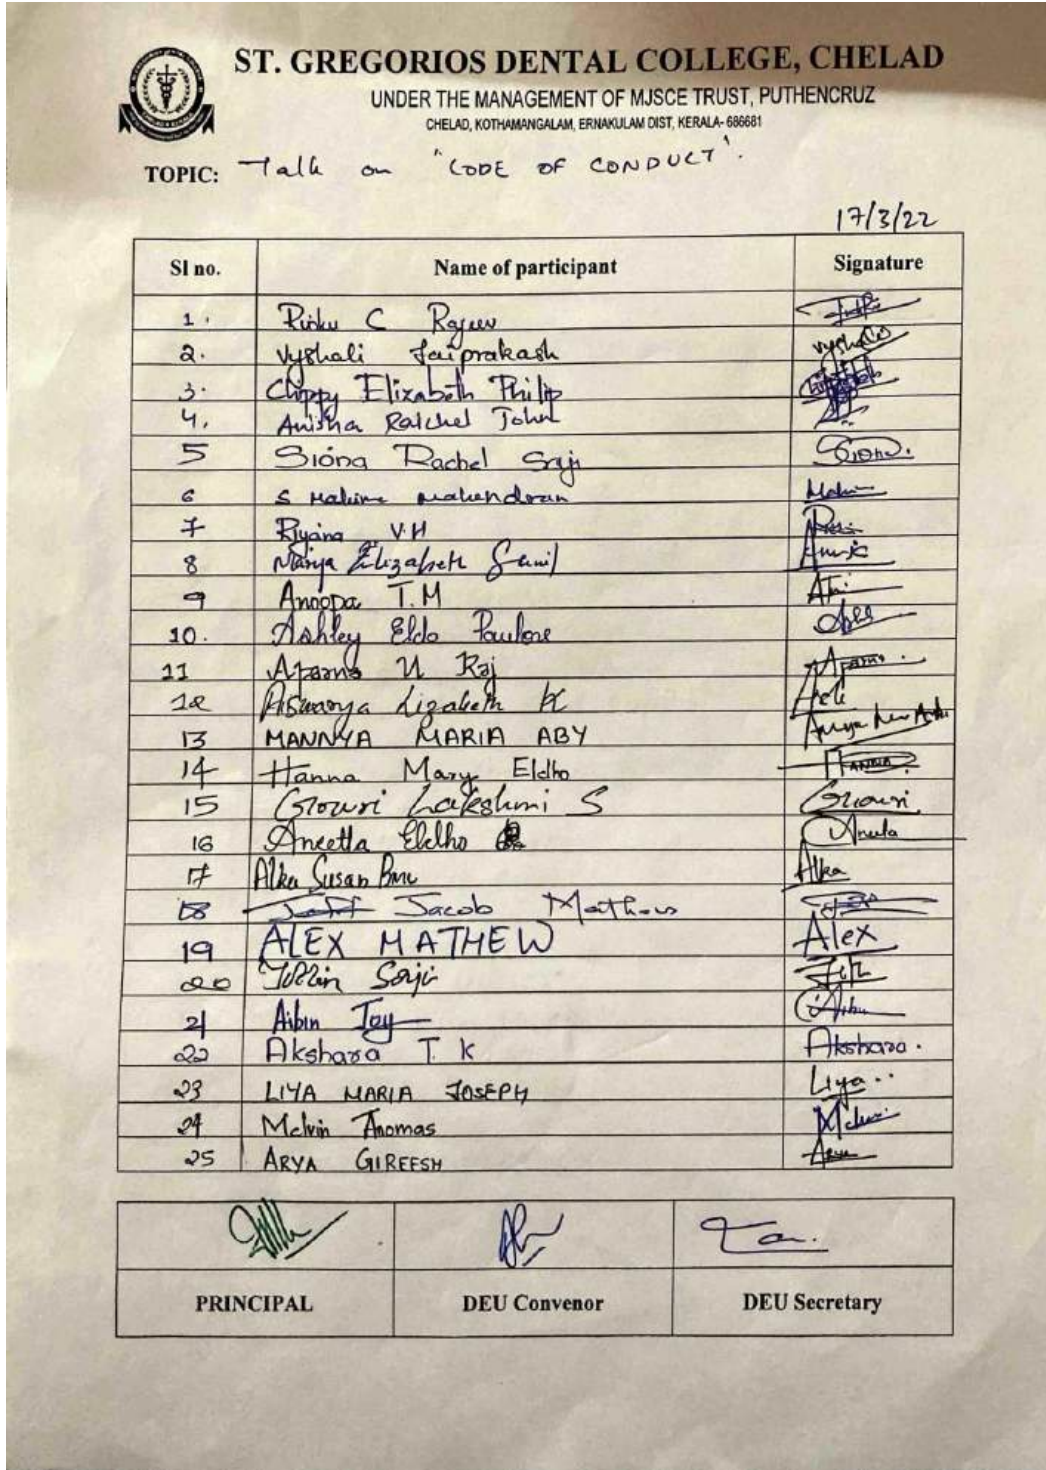 ST. GREGORIOS DENTAL COLLEGE, CHELAD
UNDER THE MANAGEMENT OF MJSCE TRUST, PUTHENCRUZ
CHELAD, KOTHAMANGALAM, ERNAKULAM DIST, KERALA- 686681
TOPIC: Talk on "CODE OF CONDUCT".
17/3/22
Sl no. Name of participant Signature
1. Rinku C Rajeev
2. Vyshali Jaiprakash Vyshali
3. Chippy Elizabeth Philip
4. Anisha Raichel John
5 Siona Rachel Saji Siona.
6 S Mahima Mahendran
7 Riyana V.H
8 Elizabeth Sunil
9 Anoopa T.M
10. Ashley Eldo Paulose
11 Aparna U Raj Aparna.
12 Aiswarya Lizabeth K
13 MANNYA MARIA ABY
14 Hanna Mary Eldho HANNA
15 Gowri Lakshmi S Gowri
16 Aneetta Eldho
17 Alka Susan Alka
18 Jacob Mathews
19 ALEX MATHEW Alex
20 Saji
21 Aibin Joy
22 Akshara T. K Akshara.
23 LIYA MARIA JOSEPH Liya..
24 Melvin Thomas
25 ARYA GIREESH
PRINCIPAL DEU Convenor DEU Secretary